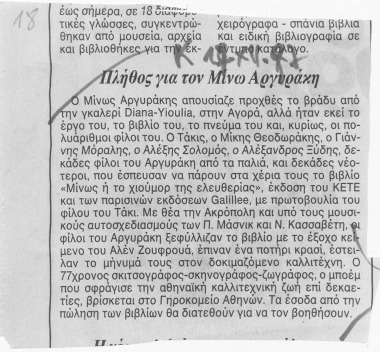 18
έως σήμερα, σε 18 διαφορε-
τικές γλώσσες, συγκεντρώ-
θηκαν από μουσεία, αρχεία
και βιβλιοθήκες για την έκ-
χειρόγραφα - σπάνια βιβλία
και ειδική βιβλιογραφία σε
έντυπο κατάλογο.
Πλήθος για τον Μίνω Αργυράκη
Ο Μίνως Αργυράκης απουσίαζε προχθές το βράδυ από
την γκαλερί Diana-Yioulia, στην Αγορά, αλλά ήταν εκεί το
έργο του, το βιβλίο του, το πνεύμα του και, κυρίως, οι πο-
λυάριθμοι φίλοι του. Ο Τάκις, ο Μίκης Θεοδωράκης, ο Γιάν-
νης Μόραλης, ο Αλέξης Σολομός, ο Αλέξανδρος Ξύδης, δε-
κάδες φίλοι του Αργυράκη από τα παλιά, και δεκάδες νεό-
τεροι, που έσπευσαν να πάρουν στα χέρια τους το βιβλίο
«Μίνως ή το χιούμορ της ελευθερίας», έκδοση του ΚΕΤΕ
και των παρισινών εκδόσεων Galillee, με πρωτοβουλία του
φίλου του Τάκι. Με θέα την Ακρόπολη και υπό τους μουσι-
κούς αυτοσχεδιασμούς των Π. Μάσνικ και Ν. Κασσαβέτη, οι
φίλοι του Αργυράκη ξεφύλλιζαν το βιβλίο με το έξοχο κεί-
μενο του Αλέν Ζουφρουά, έπιναν ένα ποτήρι κρασί, έστει-
λαν το μήνυμά τους στον δοκιμαζόμενο καλλιτέχνη. Ο
77χρονος σκιτσογράφος-σκηνογράφος-ζωγράφος, ο μποέμ
που σφράγισε την αθηναϊκή καλλιτεχνική ζωή επί δεκαε-
τίες, βρίσκεται στο Γηροκομείο Αθηνών. Τα έσοδα από την
πώληση των βιβλίων θα διατεθούν για να τον βοηθήσουν.